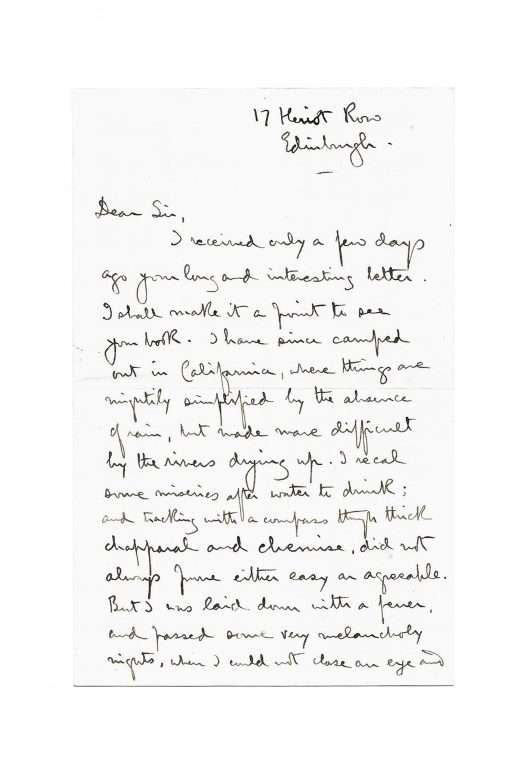 17 Heriot Row
Edinburgh.
Dear Sir,
I received only a few days
ago your long and interesting letter.
I shall make it a point to see
your book. I have since camped
out in California, where things are
mightily simplified by the absence
of rain, but made more difficult
by the rivers drying up. I recal
some miseries after water to drink;
and tracking with a compass through thick
chapparal and chemise, did not
always prove either easy or agreeable.
But I was laid down with a fever,
and passed some very melancholy
nights, when I could not close an eye and